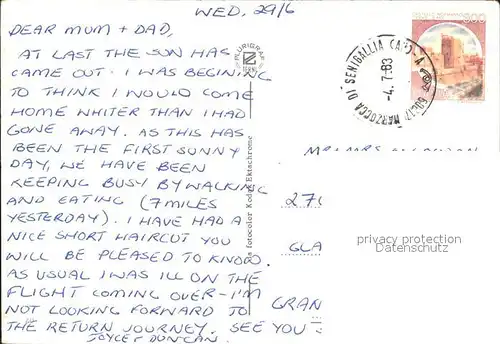 WED, 29/6
DEAR MUM + DAD,
AT LAST THE SUN HAS
CAME OUT. I WAS BEGINING
TO THINK I WOULD COME
HOME WHITER THAN I HAD
GONE AWAY. AS THIS HAS
BEEN THE FIRST SUNNY
DAY, WE HAVE BEEN
KEEPING BUSY BY WALKING
AND EATING (7 MILES
YESTERDAY). I HAVE HAD A
NICE SHORT HAIRCUT YOU
WILL BE PLEASED TO KNOW.
AS USUAL I WAS ILL ON THE
FLIGHT COMING OVER - I'M
NOT LOOKING FORWARD TO
THE RETURN JOURNEY. SEE YOU
JOYCE + DUNCAN.
PLURIGRAF
da fotocolor Kodak Ektachrome
500
60017 MARZOCCA DI SENIGALLIA (AN)
-4.7.83
MR + MRS
270
GLA
GRAN
privacy protection
Datenschutz